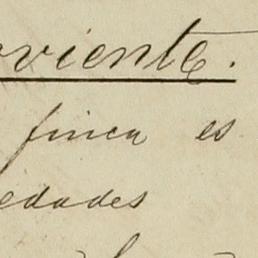 viente.
finca es
edades